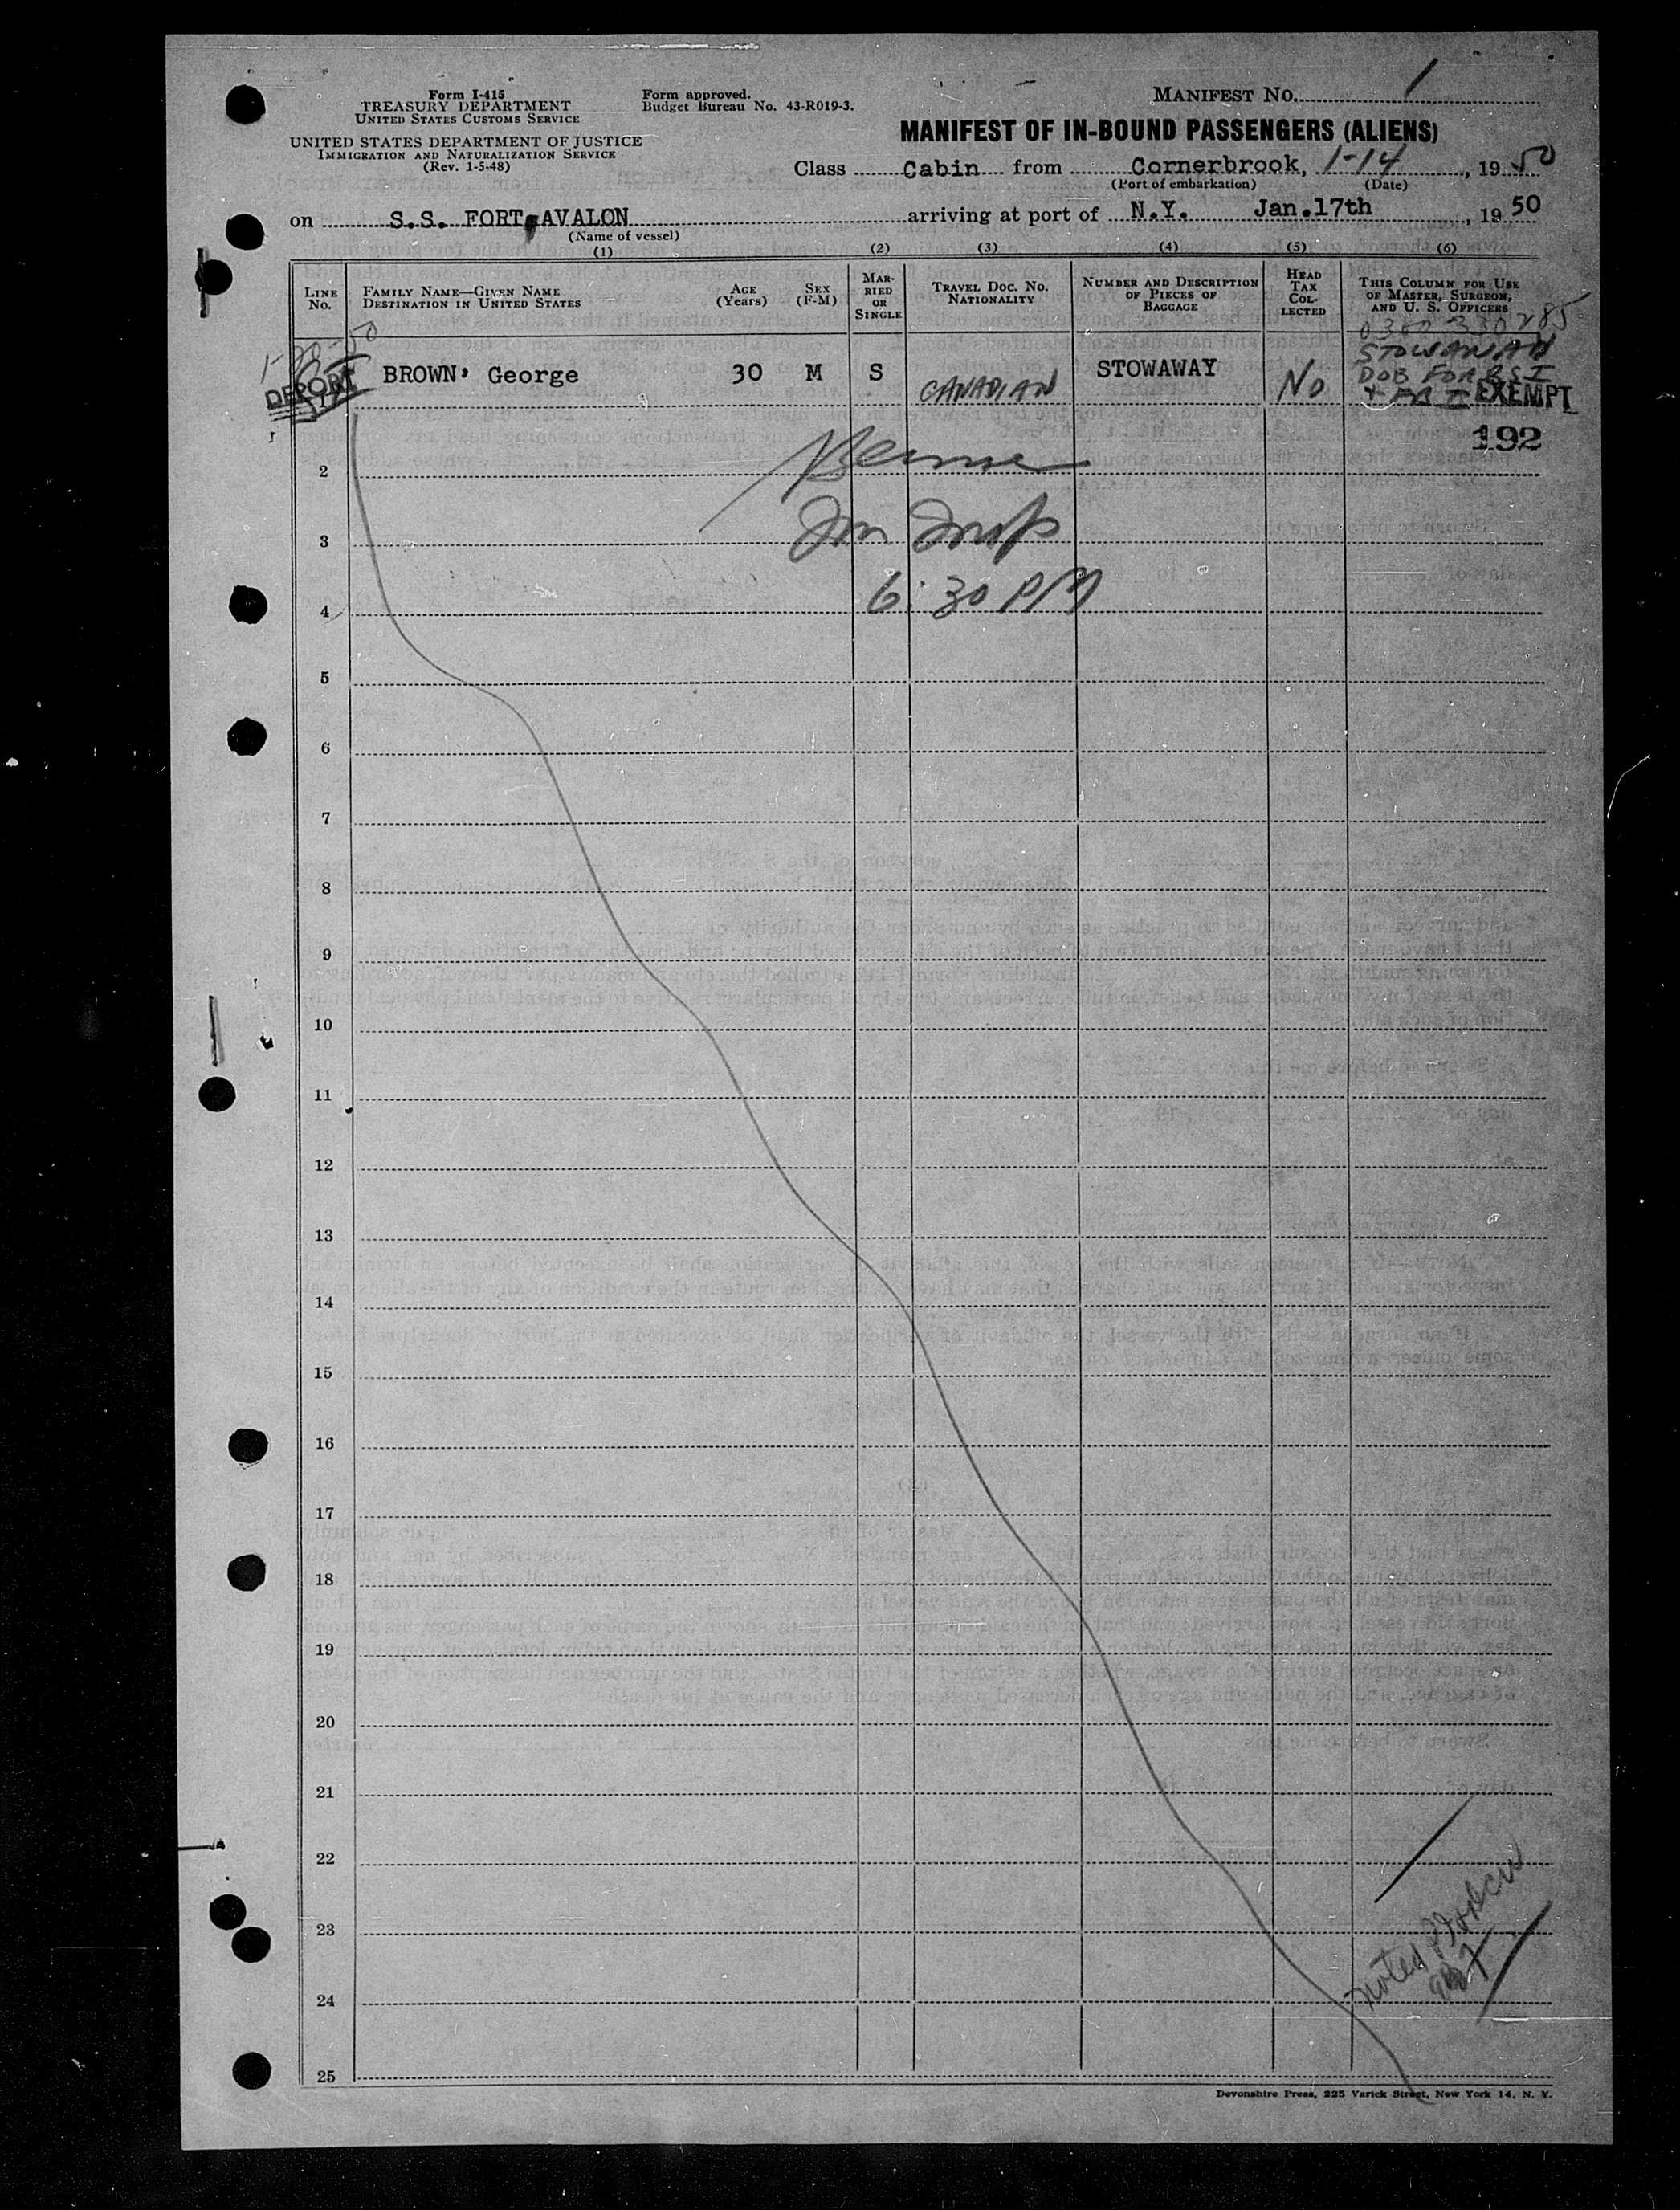 Form I-415
TREASURY DEPARTMENT
UNITED STATES CUSTOMS SERVICE
UNITED STATES DEPARTMENT OF JUSTICE
IMMIGRATION AND NATURALIZATION SERVICE
(Rev. 1-5-48)
Form approved.
Budget Bureau No. 43-R019-3.
MANIFEST NO. 1
MANIFEST OF IN-BOUND PASSENGERS (ALIENS)
Class Cabin from Cornerbrook, 1-14, 1950
(Port of embarkation) (Date)
on S.S. FORT AVALON arriving at port of N.Y. Jan.17th, 1950
(Name of vessel)
(1) (2) (3) (4) (5) (6)
LINE NO.
FAMILY NAME—GIVEN NAME
DESTINATION IN UNITED STATES
AGE (Years)
SEX (F-M)
MARRIED OR SINGLE
TRAVEL DOC. NO. NATIONALITY
NUMBER AND DESCRIPTION OF PIECES OF BAGGAGE
HEAD TAX COLLECTED
THIS COLUMN FOR USE OF MASTER, SURGEON, AND U. S. OFFICERS
1-20-50
DEPORT
BROWN, George 30 M S CANADIAN STOWAWAY NO
STOWAWAY
DOB FOR BSI
EXEMPT
192
2
3
4
6:30 PM
5
6
7
8
9
10
11
12
13
14
15
16
17
18
19
20
21
22
23
24
25
Devonshire Press, 225 Varick Street, New York 14, N. Y.